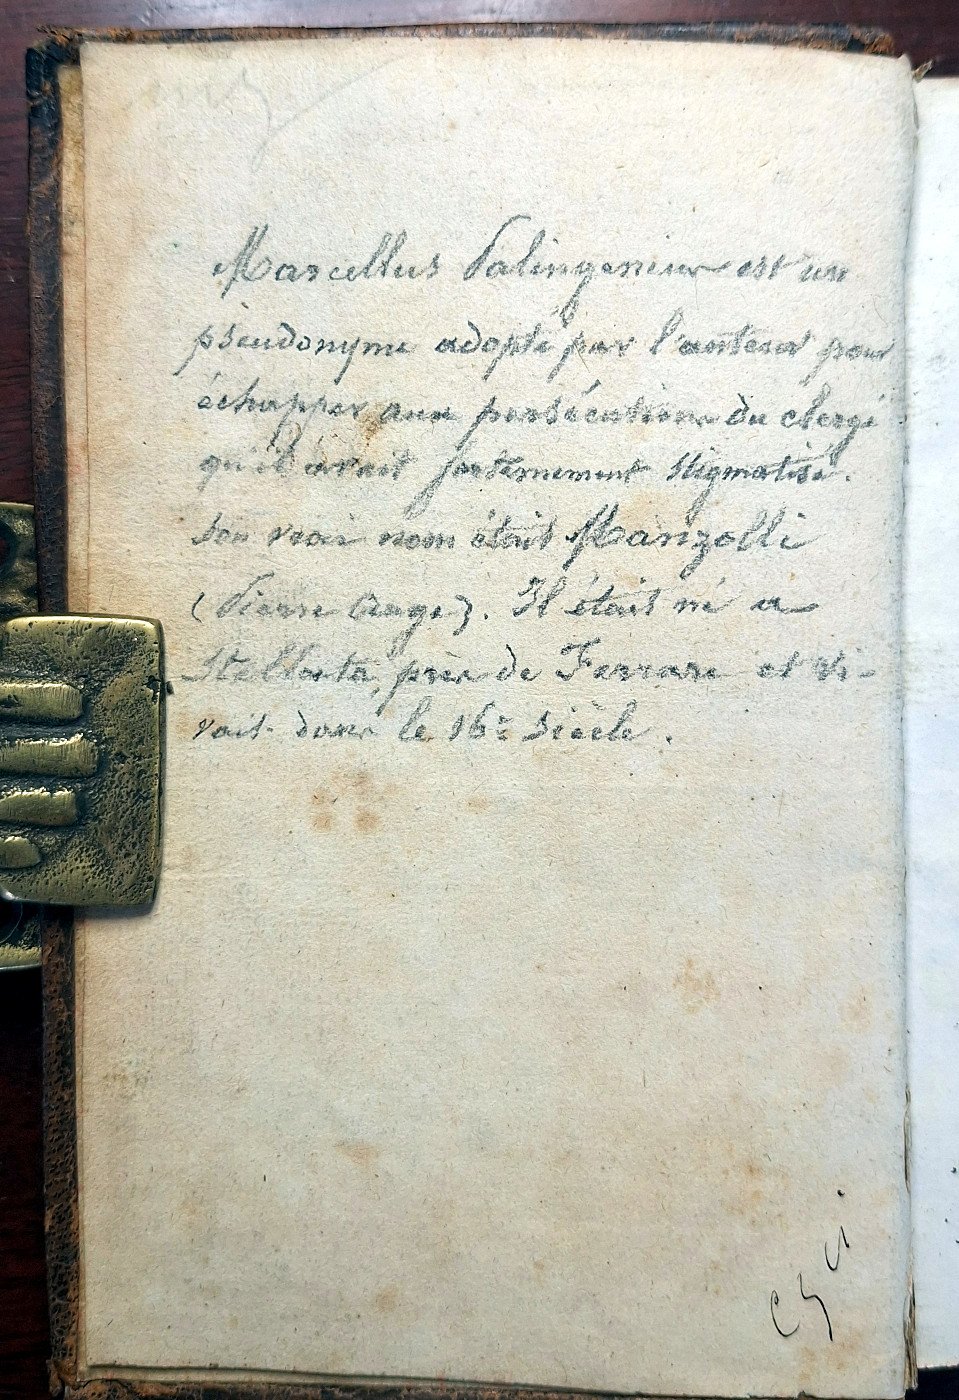 Marcellus Palingenius est un
pseudonyme adopté par l'auteur pour
échapper aux persécutions du clergé
qu'il avait fortement stigmatisé.
son vrai nom était Manzolli
(Pierre Ange). Il était né a
Stellata, près de Ferrare et vi-
vait dans le 16e siècle.